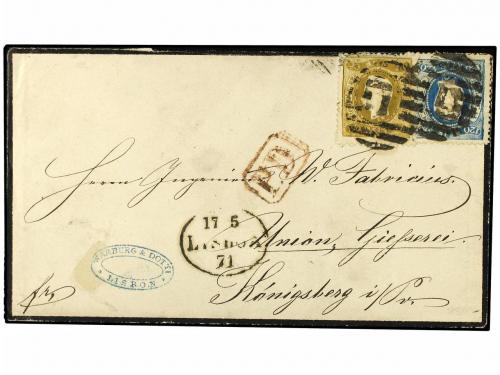 120
PD
Herrn Ingenieur W. Fabricius.
17 5
LISBOA
71
Union, Giesserei.
& DOTTI
LISBON
fro
Königsberg i/Pr.